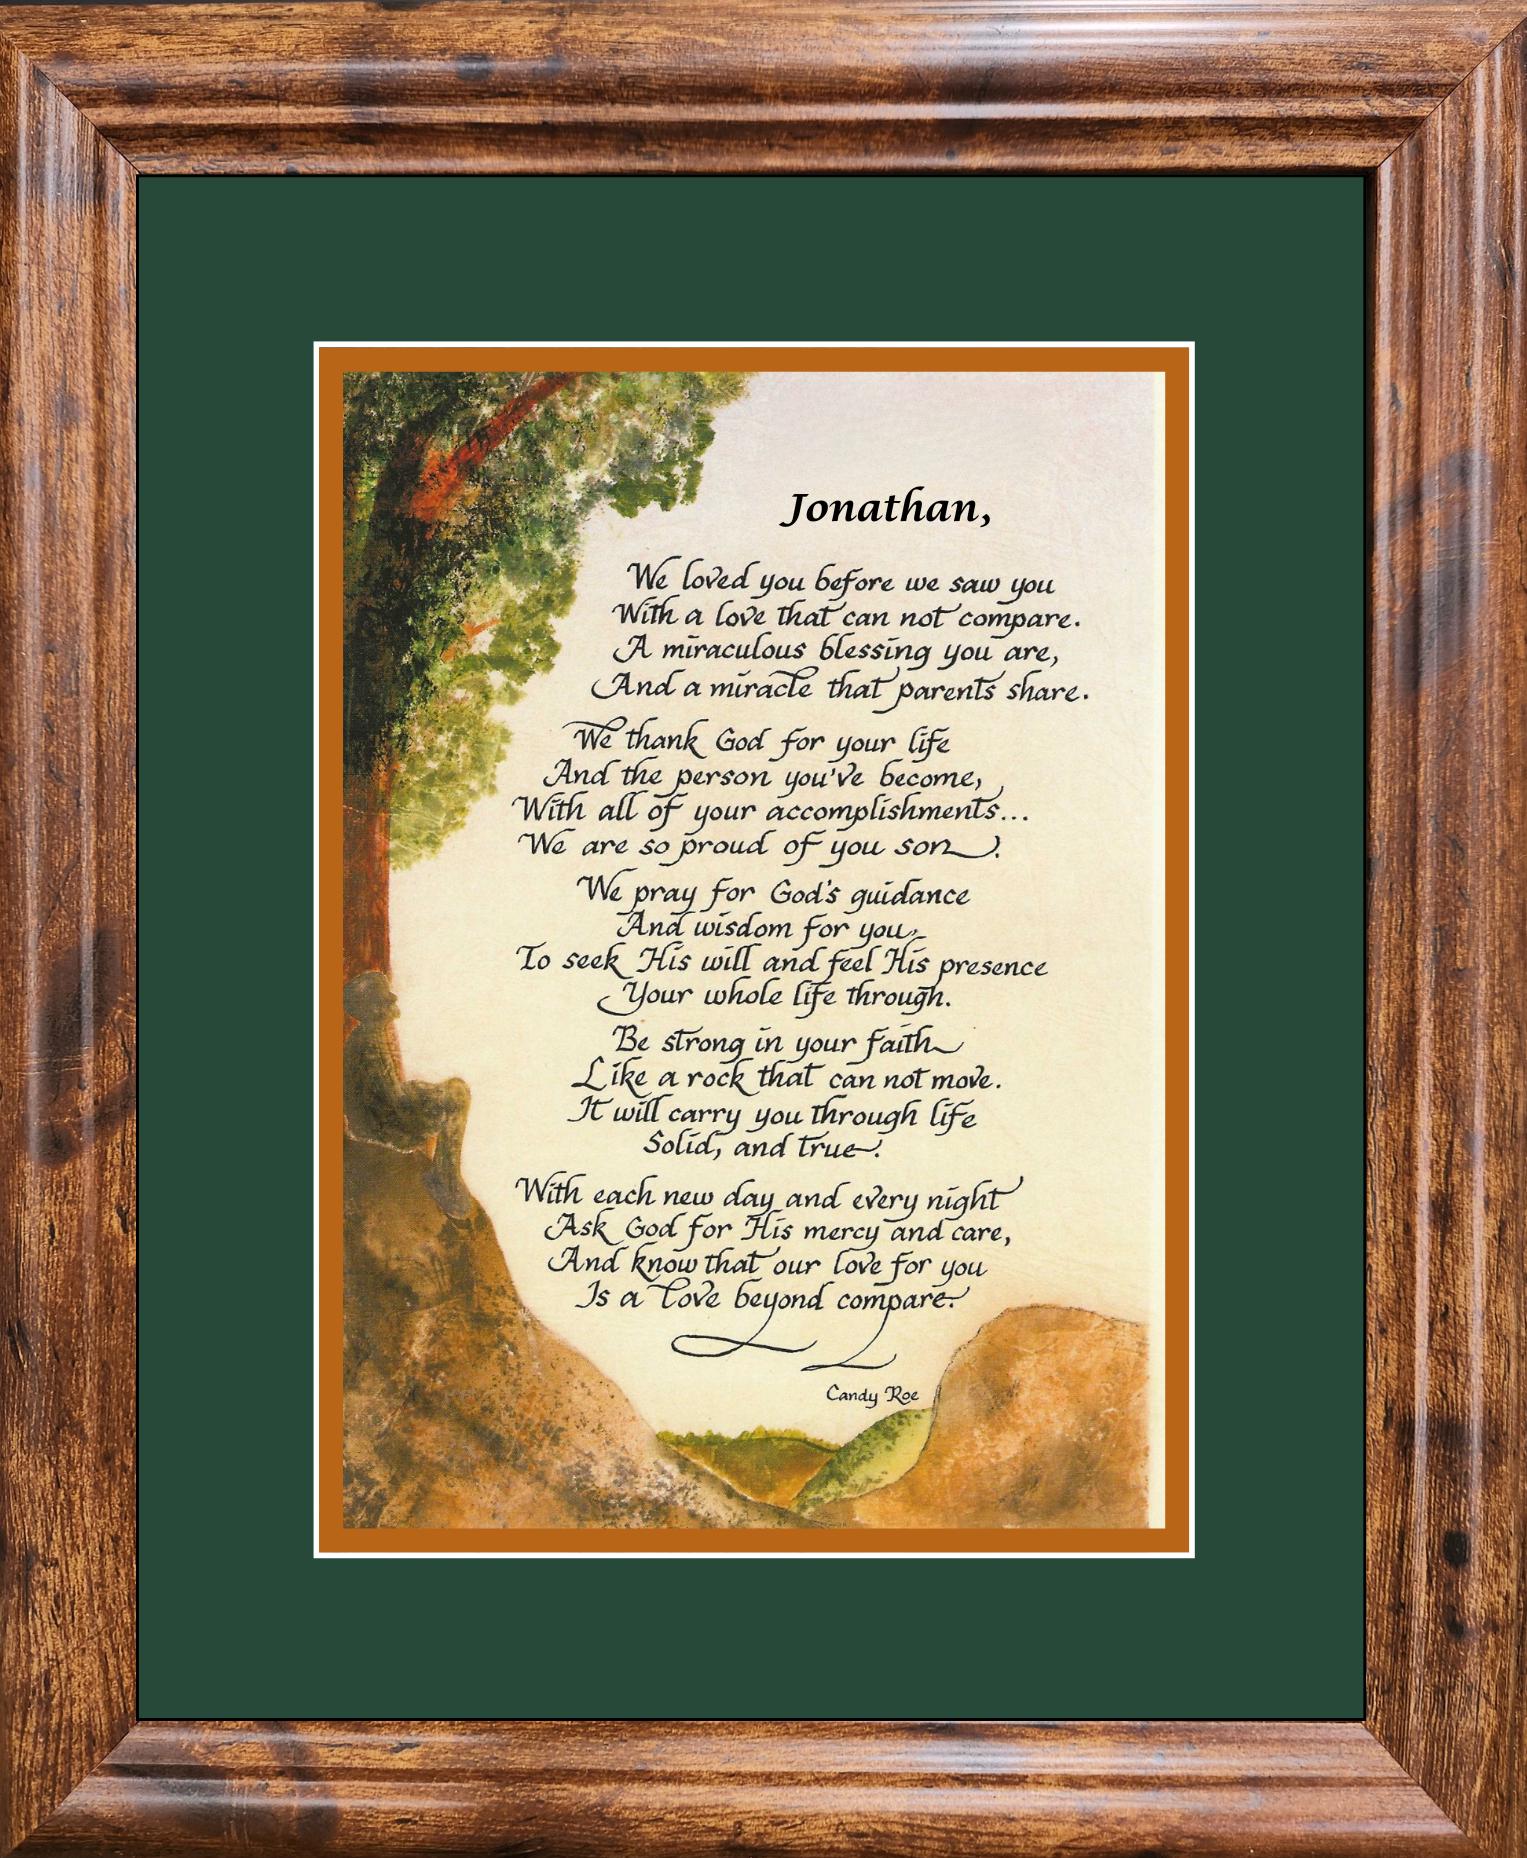 Jonathan,
We loved you before we saw you
With a love that can not compare.
A miraculous blessing you are,
And a miracle that parents share.
We thank God for your life
And the person you've become,
With all of your accomplishments...
We are so proud of you son.
We pray for God's guidance
And wisdom for you,
To seek His will and feel His presence
Your whole life through.
Be strong in your faith
Like a rock that can not move.
It will carry you through life
Solid, and true.
With each new day and every night
Ask God for His mercy and care,
And know that our love for you
Is a love beyond compare.
Candy Roe